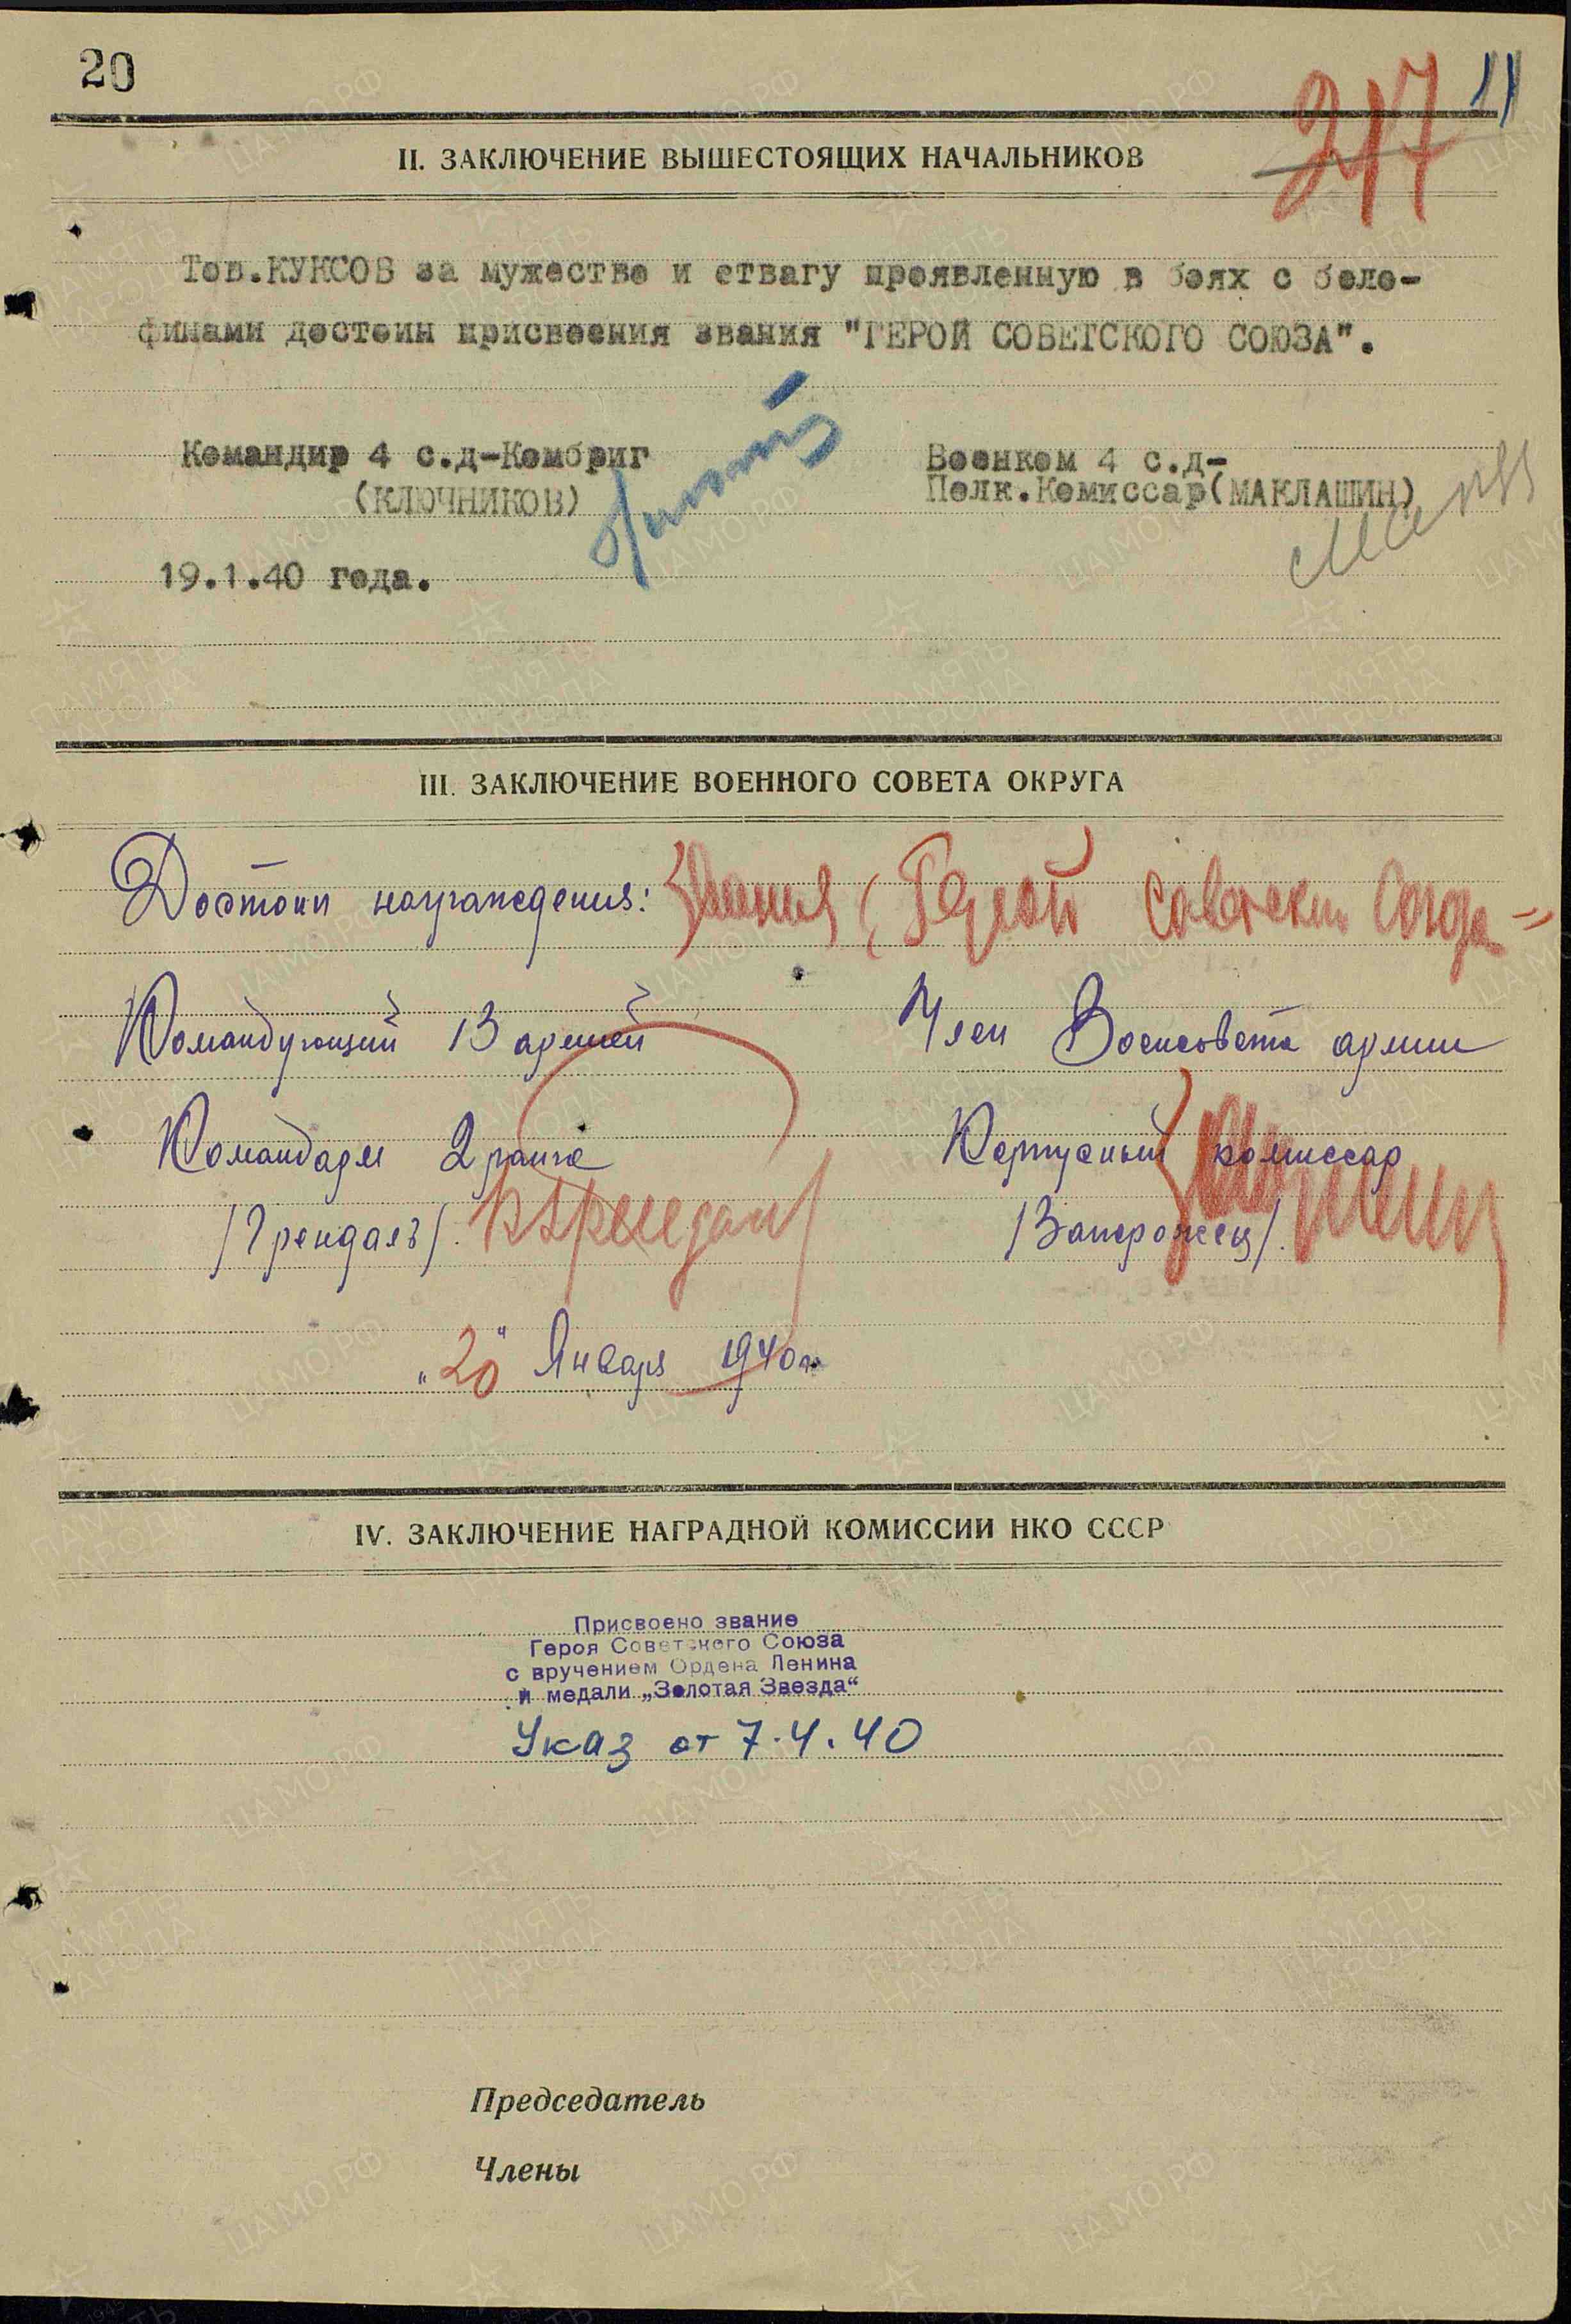 20
217 11
II. ЗАКЛЮЧЕНИЕ ВЫШЕСТОЯЩИХ НАЧАЛЬНИКОВ
Тов.КУКСОВ за мужество и отвагу проявленную в боях с бело-
финами достоин присвоения звания "ГЕРОЙ СОВЕТСКОГО СОЮЗА".
Командир 4 с.д-Комбриг
(КЛЮЧНИКОВ)
Военком 4 с.д-
Полк.Комиссар(МАКЛАШИН)
19.1.40 года.
III. ЗАКЛЮЧЕНИЕ ВОЕННОГО СОВЕТА ОКРУГА
Достоин награждения: Звания "Герой Советских Союза"
Командующий 13 армией
Командарм 2 ранга
/Грендаль/.
Член Военсовета армии
Корпусный комиссар
/Запорожец/.
"20" Января 1940г.
IV. ЗАКЛЮЧЕНИЕ НАГРАДНОЙ КОМИССИИ НКО СССР
Присвоено звание
Героя Советского Союза
с вручением Ордена Ленина
и медали „Золотая Звезда“
Указ от 7.4.40
Председатель
Члены
ПАМЯТЬ НАРОДА
ЦА МО РФ